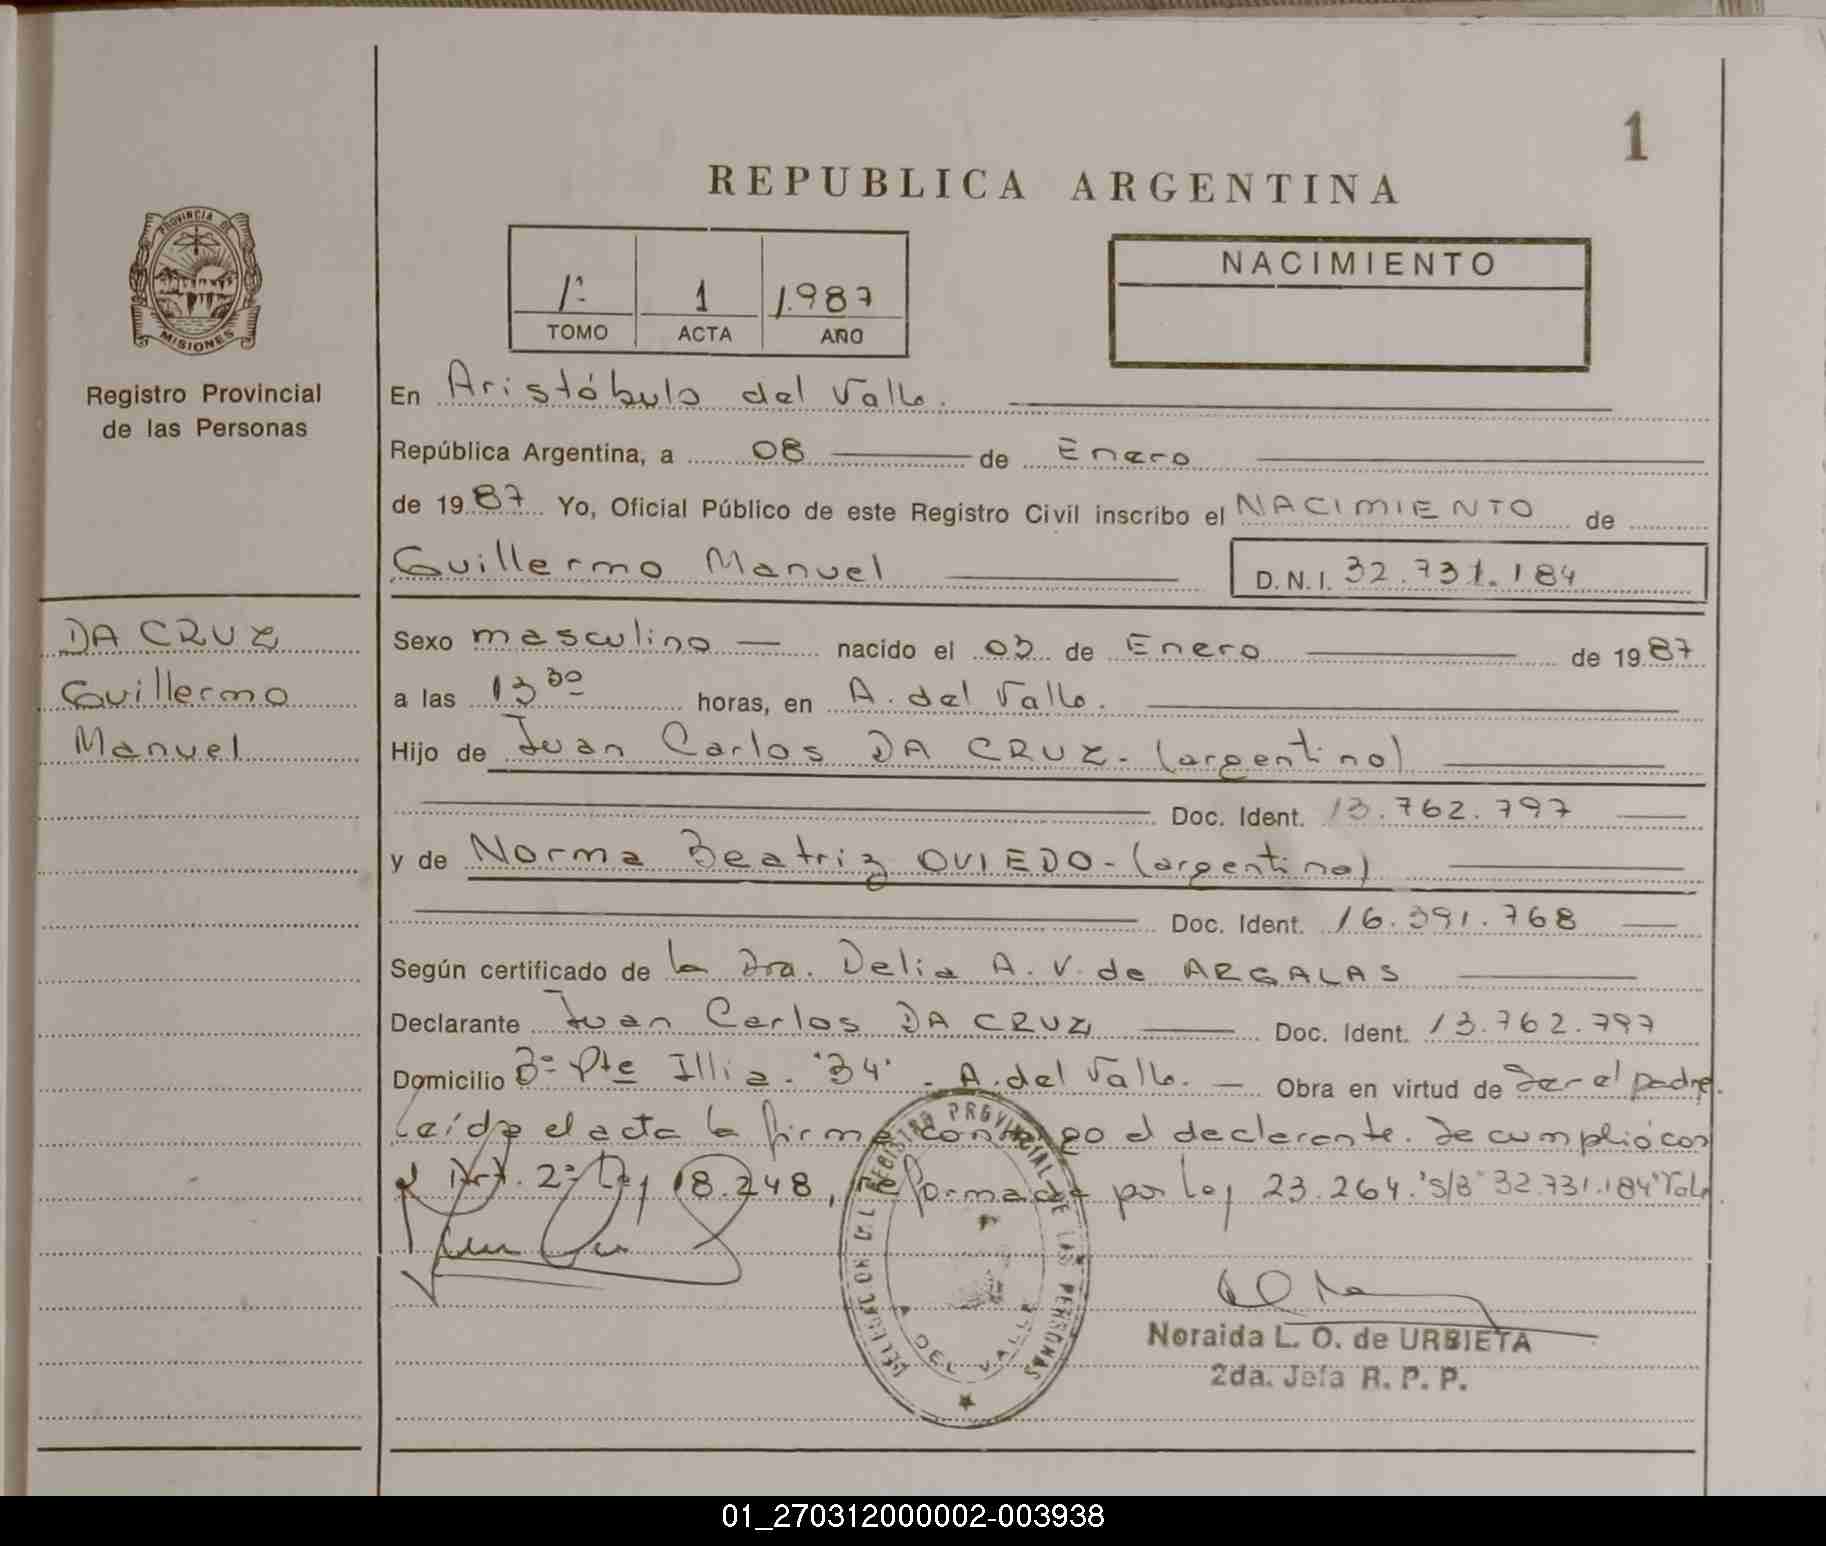 1
REPUBLICA ARGENTINA
PROVINCIA DE
MISIONES
Registro Provincial
de las Personas
1º 1 1.987
TOMO ACTA AÑO
NACIMIENTO
En Aristóbulo del Valle.
República Argentina, a 08 de Enero
de 1987 Yo, Oficial Público de este Registro Civil inscribo el NACIMIENTO de
Guillermo Manuel D.N.I. 32.731.184
DA CRUZ
Guillermo
Manuel
Sexo masculino nacido el 03 de Enero de 1987
a las 13 30 horas, en A. del Valle.
Hijo de Juan Carlos DA CRUZ - (argentino)
Doc. Ident. 13.762.797
y de Norma Beatriz OVIEDO - (argentina)
Doc. Ident. 16.391.768
Según certificado de la Dra. Delia A. V. de ARGALAS
Declarante Juan Carlos DA CRUZ Doc. Ident. 13.762.797
Domicilio Bº Pte Illia. "34". A. del Valle. Obra en virtud de Ser el padre.
Leída el acta la firma conmigo el declarante. Se cumplió con
el Art. 2º Ley 18.248, reformada por Ley 23.264. "S/B" 32.731.184 "Vale.
DELEGACION REGISTRO PROVINCIAL DE LAS PERSONAS
A. DEL VALLE
Noraida L. O. de URBIETA
2da. Jefa R. P. P.
01_270312000002-003938